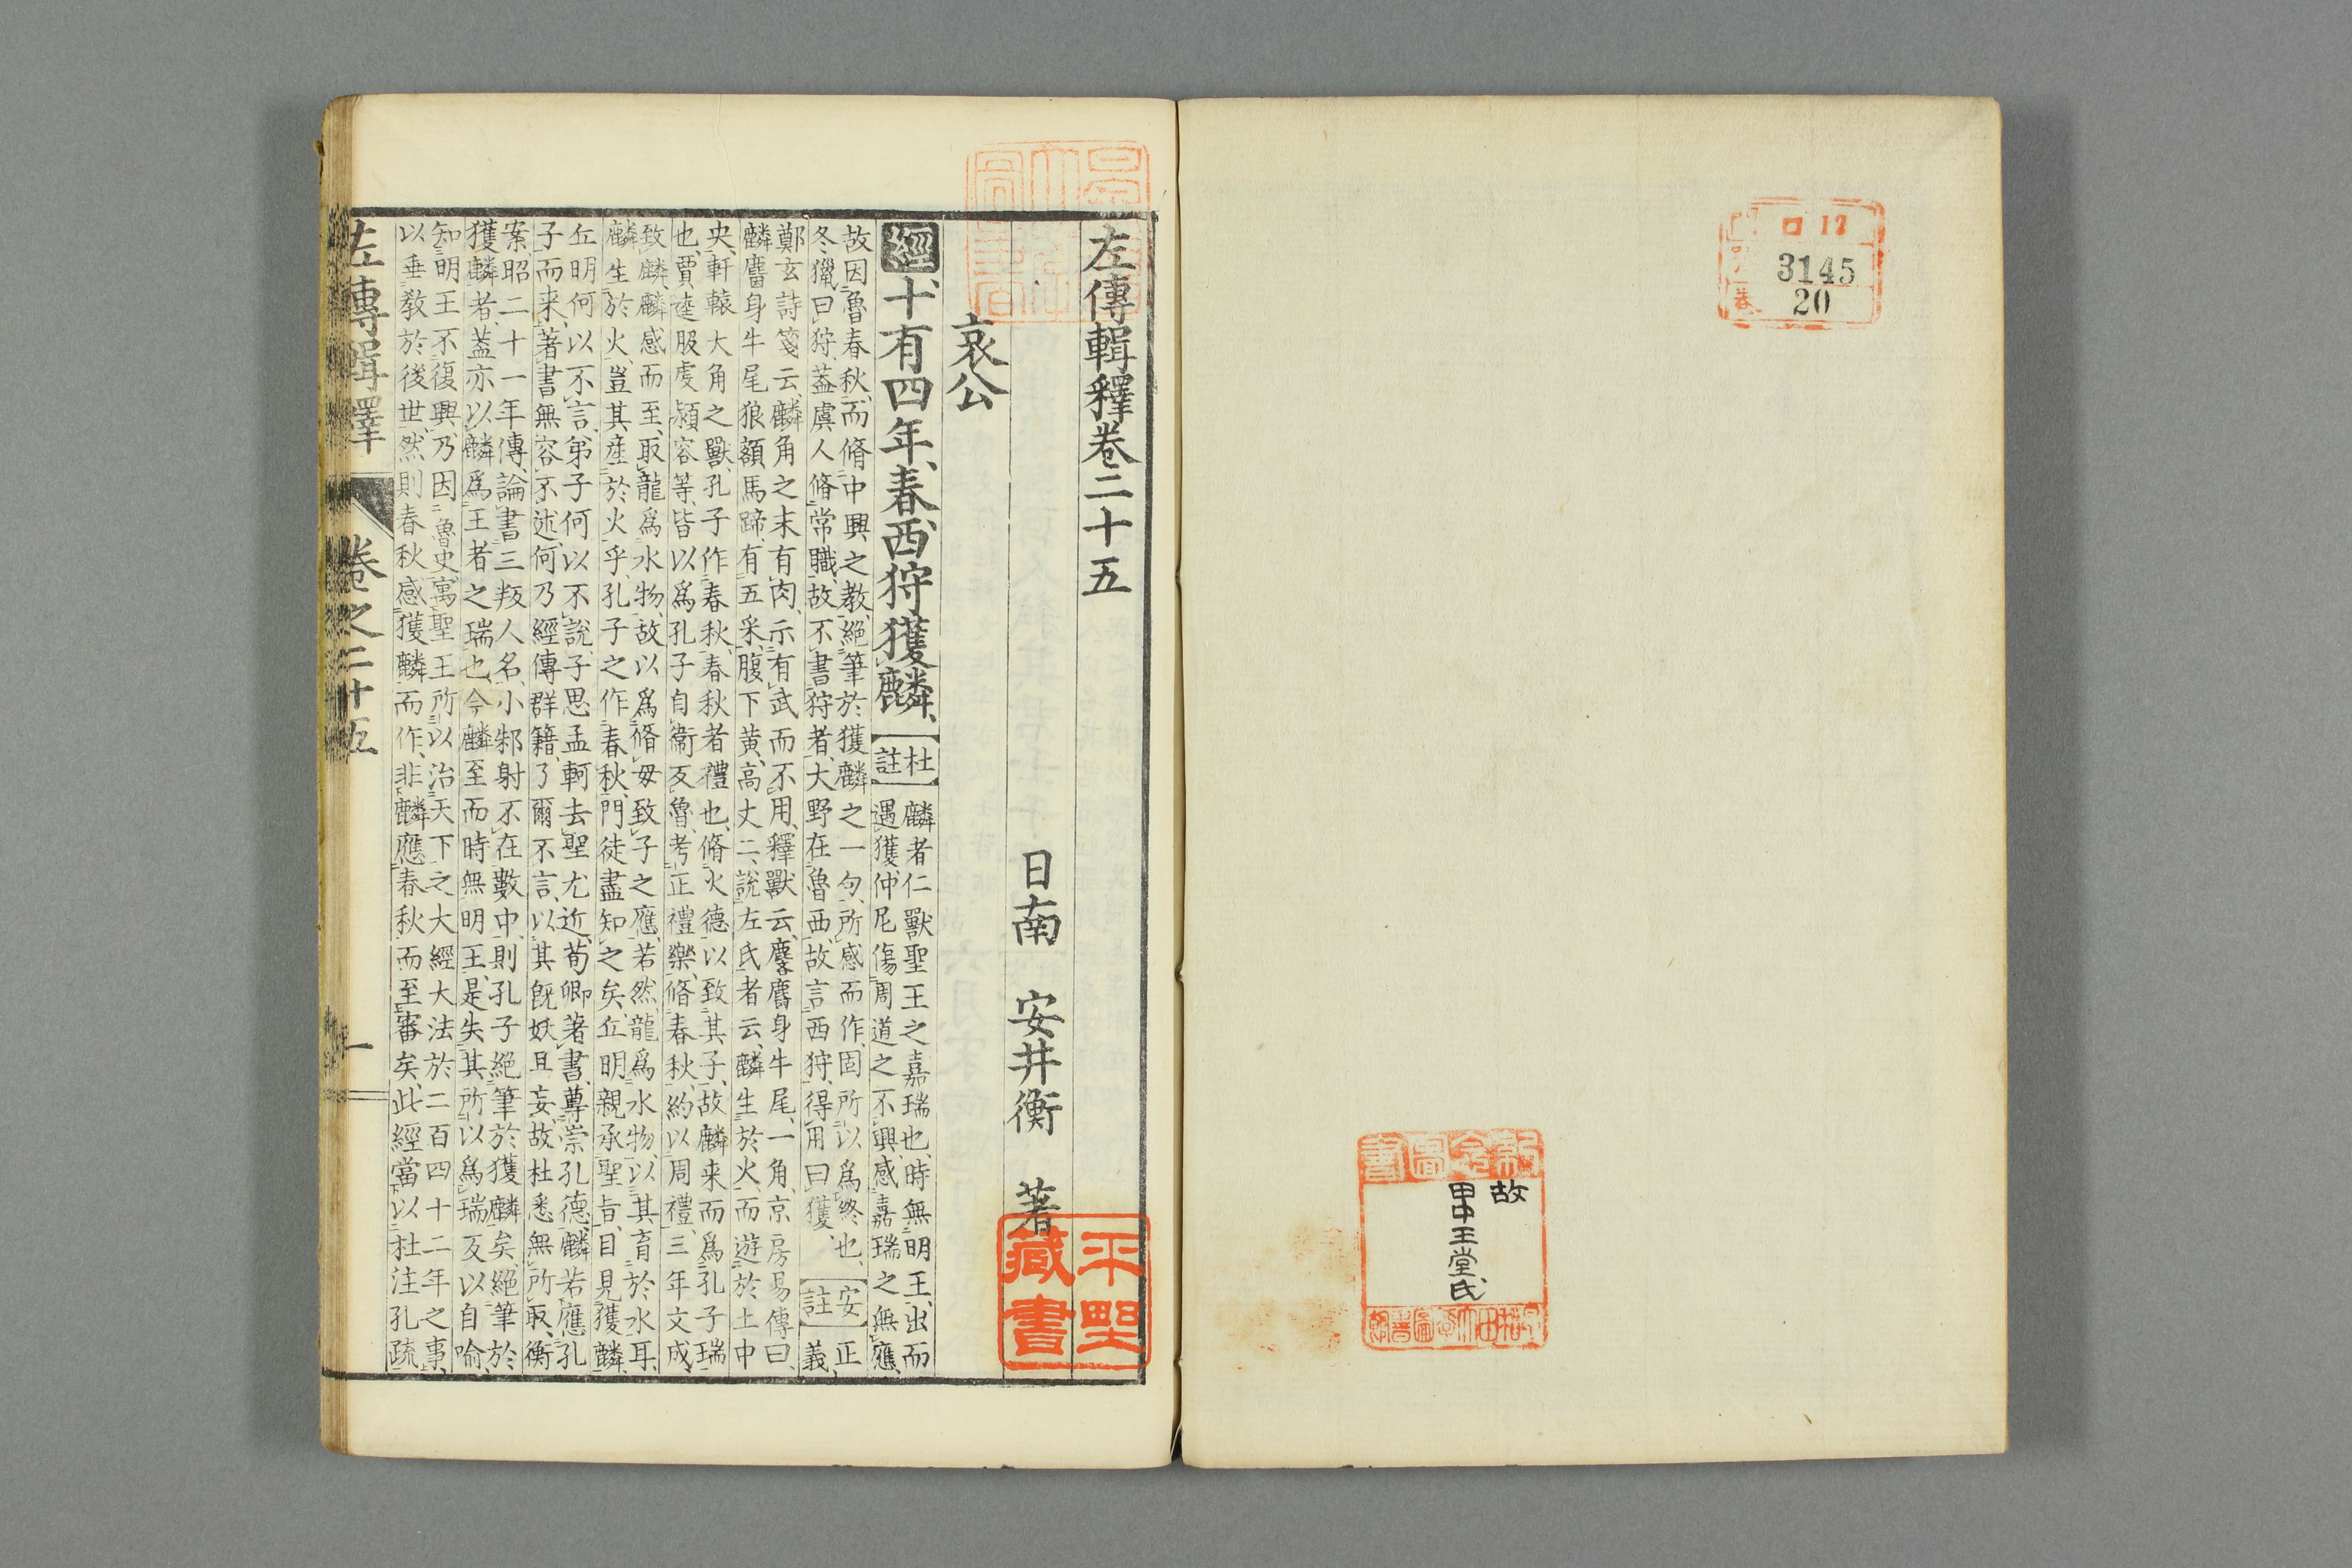 口 12
3145
20
巻
故
甲中王堂氏
左傳輯釋卷二十五
日南 安井衡 著
平野
藏書
哀公
經十有四年、春、西狩獲麟、
杜
註
麟者仁獸聖王之嘉瑞也、時無明王、出而
遇獲、仲尼傷周道之不興、感嘉瑞之無應、
故因魯春秋、而脩中興之教、絕筆於獲麟之一句、所感而作、固所以爲終也、
冬獵曰狩、蓋虞人脩常職、故不書狩者、大野在魯西、故言西狩、得用曰獲、
安
註
正
義、
鄭玄詩箋云、麟角之末有肉、示有武而不用、釋獸云、麐麕身牛尾、一角、京房易傳曰、
麟麕身牛尾狼額馬蹄、有五采、腹下黃、高丈二、說左氏者云、麟生於火、而遊於土中
央、軒轅大角之獸、孔子作春秋、春秋者禮也、脩火德以致其子、故麟来而爲孔子瑞
也、賈逵服虔潁容等、皆以爲孔子自衞反魯、考正禮樂、脩春秋、約以周禮、三年文成、
致麟、麟感而至、取龍爲水物、故以爲脩母致子之應、若然龍爲水物、以其育於水耳、
麟生於火、豈其産於火乎、孔子之作春秋、門徒盡知之矣、丘明親承聖旨、目見獲麟、
丘明何以不言、弟子何以不說、子思孟軻去聖尤近、荀卿著書、尊崇孔德、麟若應孔
子而来、著書無容不述、何乃經傳群籍、了爾不言、以其旣妖且妄、故杜悉無所取、衡
案、昭二十一年傳、論書三叛人名、小邾射不在數中、則孔子絕筆於獲麟矣、絕筆於
獲麟者、蓋亦以麟爲王者之瑞也、今麟至而時無明王、是失其所以爲瑞、反以自喻、
知明王不復興、乃因魯史、寓聖王所以治天下之大經大法於二百四十二年之事、
以垂敎於後世、然則春秋感獲麟而作、非麟應春秋而至、審矣、此經當以杜注孔疏
左傳輯釋 卷之二十五 一